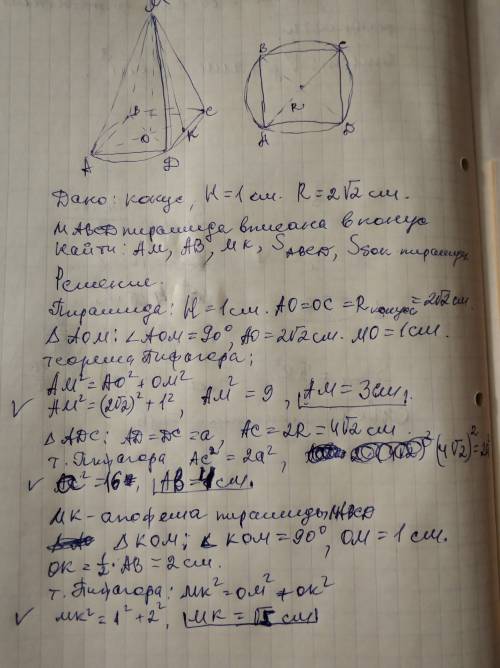 M
B C
K
O
A D
B C
R
A D
Дано: конус, H = 1 см. R = 2√2 см.
MABCD пирамида вписана в конус
Найти: AM, AB, MK, S ABCD, S бок пирамиды
Решение.
Пирамида: H = 1 см. AO = OC = R конуса = 2√2 см.
△ AOM: ∠ AOM = 90°, AO = 2√2 см. MO = 1 см.
теорема Пифагора;
AM² = AO² + OM²
✓ AM² = (2√2)² + 1², AM² = 9, AM = 3 см.
△ ADC: AD = DC = a, AC = 2R = 4√2 см.
т. Пифагора AC² = 2a², (4√2)² = 2a²
✓ a² = 16, AB = 4 см.
MK - апофема пирамиды
△ KOM: ∠ KOM = 90°, OM = 1 см.
OK = ½ · AB = 2 см.
т. Пифагора: MK² = OM² + OK²
✓ MK² = 1² + 2², MK = √5 см